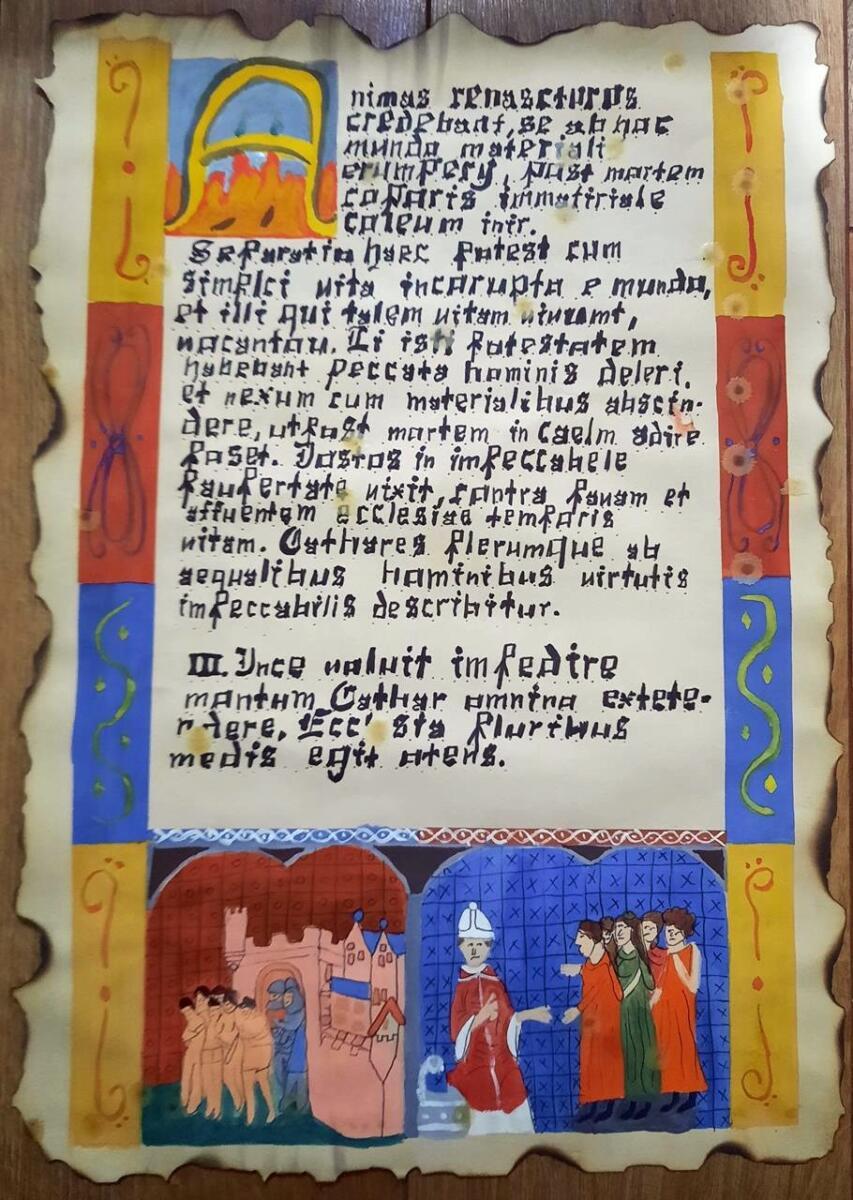 Animas renascturos
credebant, se ab hoc
mundo materiali
erumpery, post mortem
coparis immatiriale
coleum inir.
Separatio haec potest cum
simplci vita incorupta e mundo,
et illi qui talem vitam vivunt,
vocantou. Ei isti potestatem
habebant peccata hominis deleri,
et nexum cum materialibus abscin-
dere, ut post mortem in Caelm adire
poset. Dostos in impeccabele
paupertate vixit, contra pavam et
affuentem ecclesiae temporis
vitam. Cathares plerumque ab
aequalibus hominibus virtutis
impeccabilis describitur.
III. Ince voluit impedire
montum Cathar omnino extete-
r dere, Ecc' sia pluribus
medis egit otens.